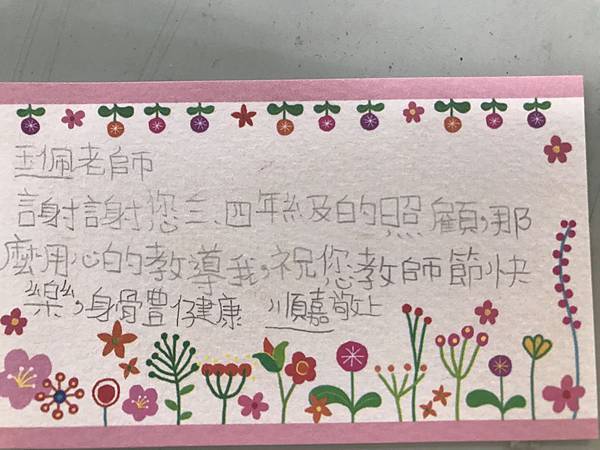 玉佩老師
謝謝您三、四年級的照顧，那
麼用心的教導我，祝您教師節快
樂，身體健康 順嘉敬上